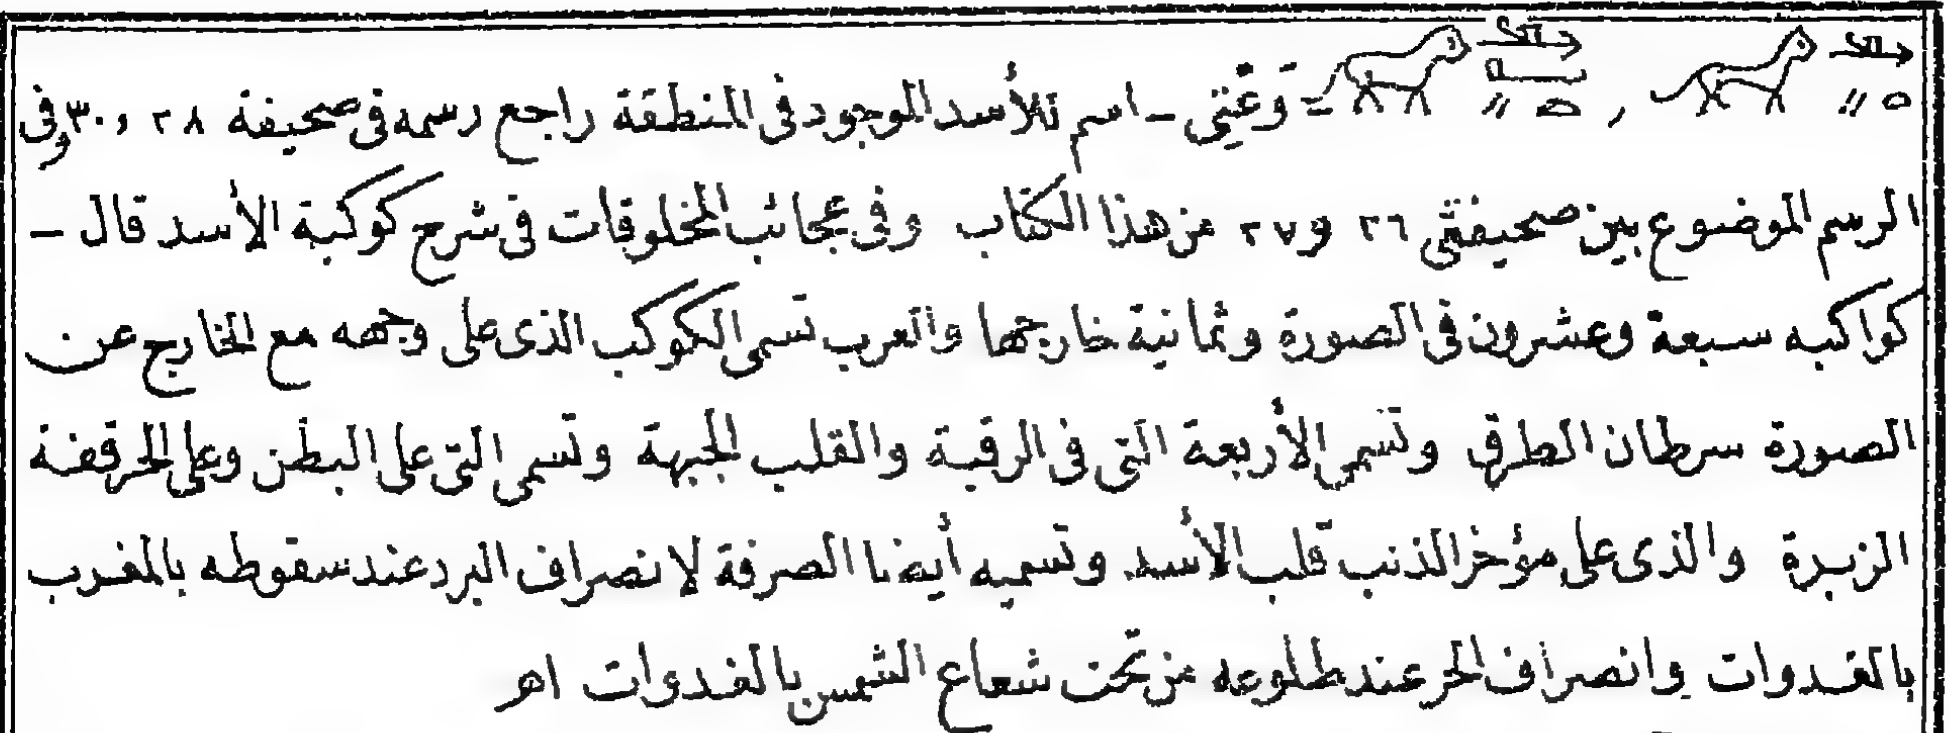 وَعَّتِي - اسم للأسد الموجود في المنطقة راجع رسمه في صحيفة ٢٨ و ٣٠ وفي
الرسم الموضوع بين صحيفتي ٢٦ و ٢٧ من هذا الكتاب وفي عجائب المخلوقات في شرح كوكبة الأسد قال -
كواكبه سبعة وعشرون في الصورة وثمانية خارجها والعرب تسمى الكوكب الذى على وجهه مع الخارج عن
الصورة سرطان الطرق وتسمى الأربعة التى فى الرقبة والقلب الجبهة وتسمى التى على البطن وعلى الحرقفة
الزبرة والذى على مؤخر الذنب قلب الأسد وتسميه أيضا الصرفة لانصراف البرد عند سقوطه بالمغرب
بالغدوات وانصراف الحر عند طلوعه من تحت شعاع الشمس بالغدوات اهـ